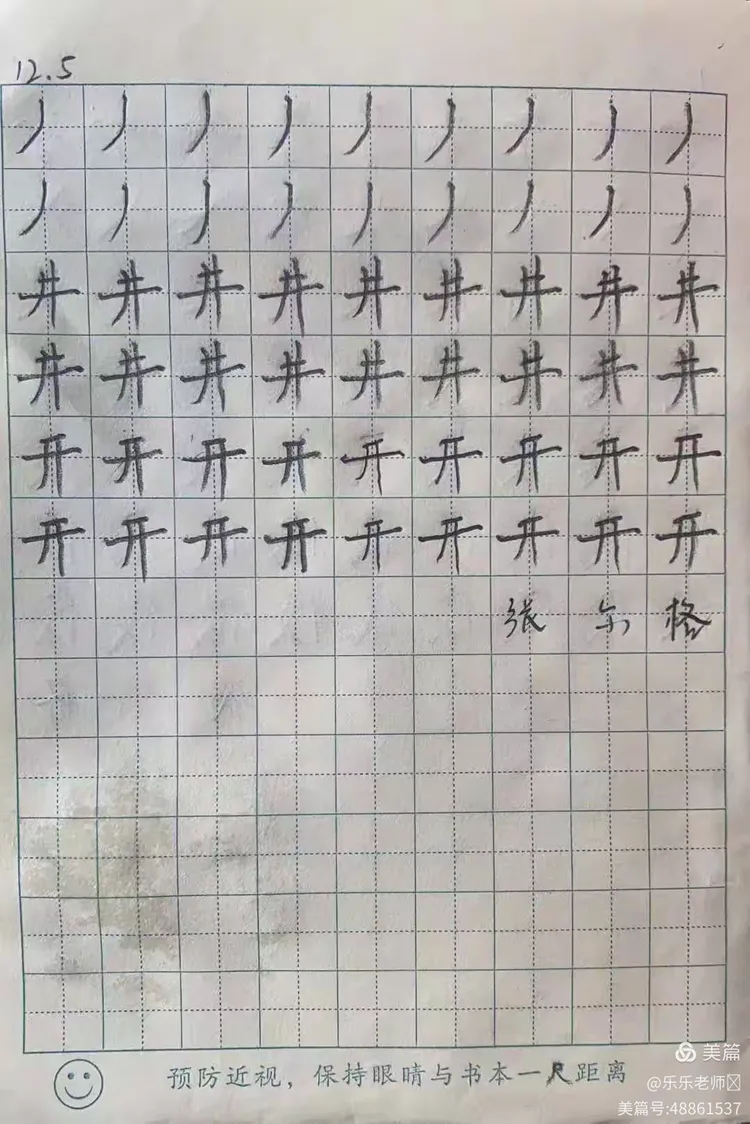 12.5
丿 丿 丿 丿 丿 丿 丿 丿 丿
丿 丿 丿 丿 丿 丿 丿 丿 丿
井 井 井 井 井 井 井 井 井
井 井 井 井 井 井 井 井 井
开 开 开 开 开 开 开 开 开
开 开 开 开 开 开 开 开 开
张 尔 格
预防近视，保持眼睛与书本一尺距离
美篇
@乐乐老师
美篇号:48861537